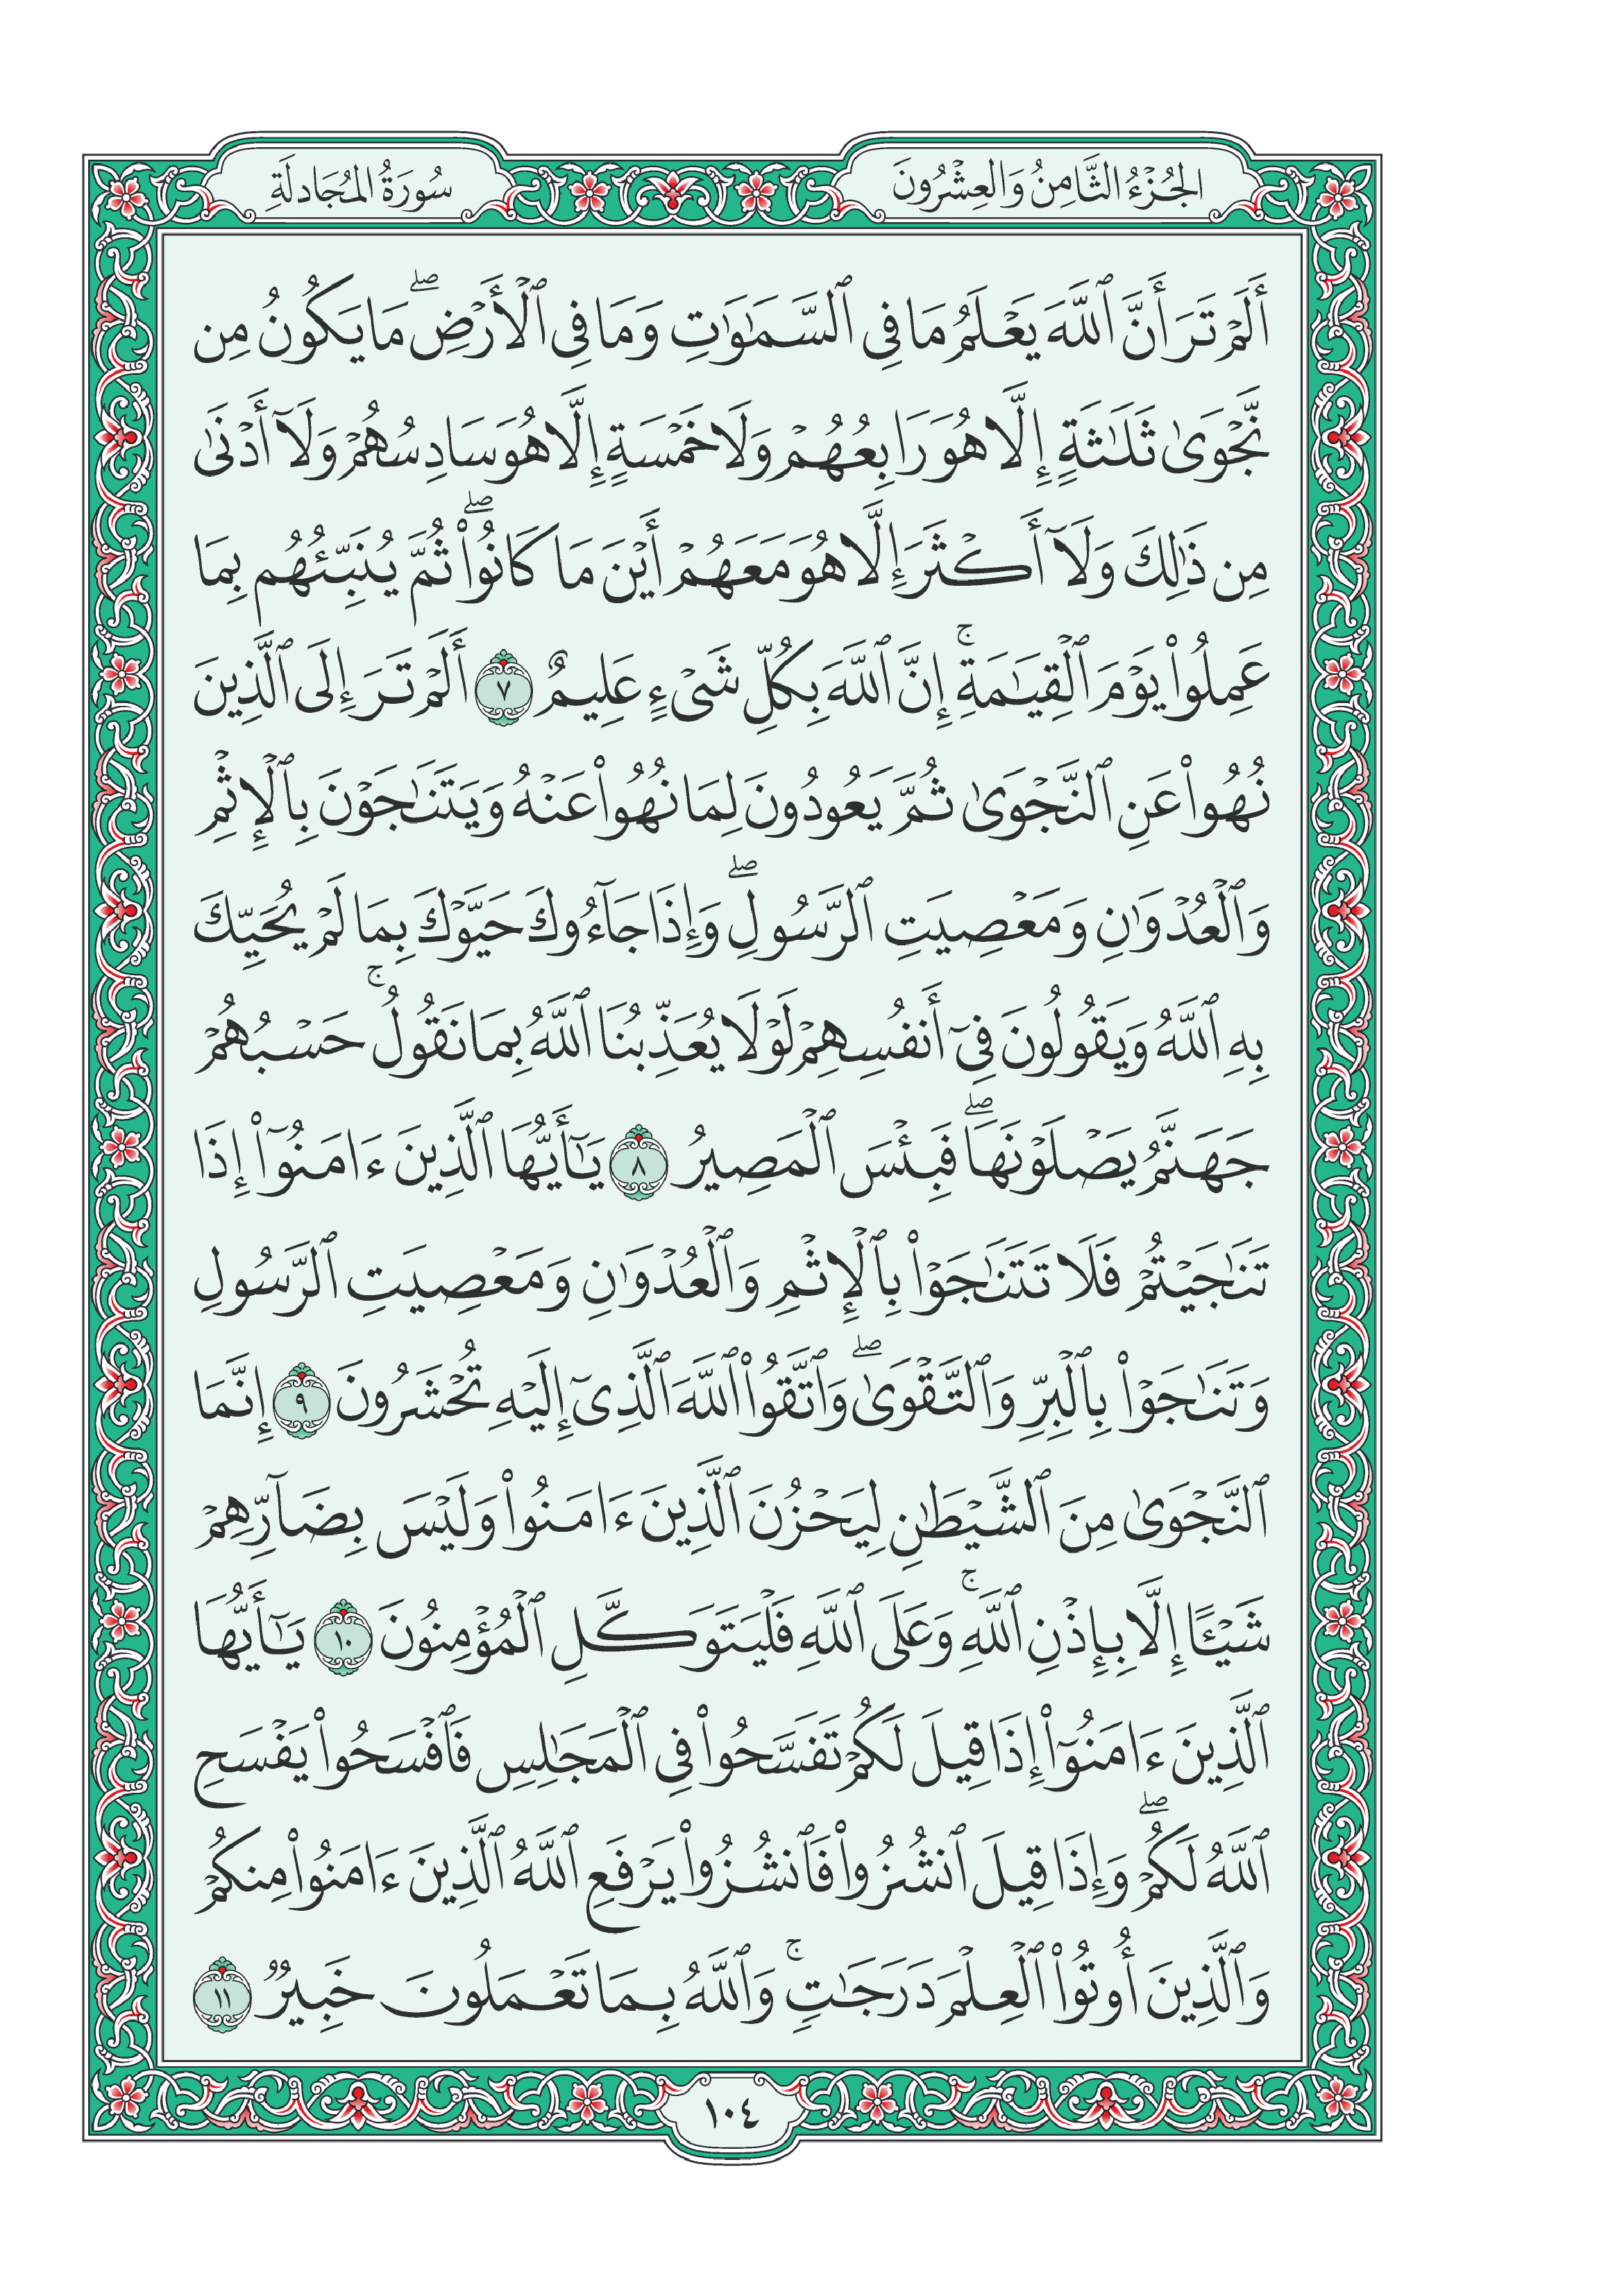 الجُزْءُ الثَّامِنُ وَالعِشْرُونَ
سُورَةُ المُجَادلَةِ
أَلَمْ تَرَ أَنَّ ٱللَّهَ يَعْلَمُ مَا فِي ٱلسَّمَٰوَٰتِ وَمَا فِي ٱلْأَرْضِۖ مَا يَكُونُ مِن
نَّجْوَىٰ ثَلَٰثَةٍ إِلَّا هُوَ رَابِعُهُمْ وَلَا خَمْسَةٍ إِلَّا هُوَ سَادِسُهُمْ وَلَآ أَدْنَىٰ
مِن ذَٰلِكَ وَلَآ أَكْثَرَ إِلَّا هُوَ مَعَهُمْ أَيْنَ مَا كَانُوا۟ۖ ثُمَّ يُنَبِّئُهُم بِمَا
عَمِلُوا۟ يَوْمَ ٱلْقِيَٰمَةِۚ إِنَّ ٱللَّهَ بِكُلِّ شَىْءٍ عَلِيمٌ ٧ أَلَمْ تَرَ إِلَى ٱلَّذِينَ
نُهُوا۟ عَنِ ٱلنَّجْوَىٰ ثُمَّ يَعُودُونَ لِمَا نُهُوا۟ عَنْهُ وَيَتَنَٰجَوْنَ بِٱلْإِثْمِ
وَٱلْعُدْوَٰنِ وَمَعْصِيَتِ ٱلرَّسُولِۖ وَإِذَا جَآءُوكَ حَيَّوْكَ بِمَا لَمْ يُحَيِّكَ
بِهِ ٱللَّهُ وَيَقُولُونَ فِىٓ أَنفُسِهِمْ لَوْلَا يُعَذِّبُنَا ٱللَّهُ بِمَا نَقُولُۚ حَسْبُهُمْ
جَهَنَّمُ يَصْلَوْنَهَاۖ فَبِئْسَ ٱلْمَصِيرُ ٨ يَٰٓأَيُّهَا ٱلَّذِينَ ءَامَنُوٓا۟ إِذَا
تَنَٰجَيْتُمْ فَلَا تَتَنَٰجَوْا۟ بِٱلْإِثْمِ وَٱلْعُدْوَٰنِ وَمَعْصِيَتِ ٱلرَّسُولِ
وَتَنَٰجَوْا۟ بِٱلْبِرِّ وَٱلتَّقْوَىٰۖ وَٱتَّقُوا۟ ٱللَّهَ ٱلَّذِىٓ إِلَيْهِ تُحْشَرُونَ ٩ إِنَّمَا
ٱلنَّجْوَىٰ مِنَ ٱلشَّيْطَٰنِ لِيَحْزُنَ ٱلَّذِينَ ءَامَنُوا۟ وَلَيْسَ بِضَآرِّهِمْ
شَيْـًٔا إِلَّا بِإِذْنِ ٱللَّهِۚ وَعَلَى ٱللَّهِ فَلْيَتَوَكَّلِ ٱلْمُؤْمِنُونَ ١٠ يَٰٓأَيُّهَا
ٱلَّذِينَ ءَامَنُوٓا۟ إِذَا قِيلَ لَكُمْ تَفَسَّحُوا۟ فِى ٱلْمَجَٰلِسِ فَٱفْسَحُوا۟ يَفْسَحِ
ٱللَّهُ لَكُمْۖ وَإِذَا قِيلَ ٱنشُزُوا۟ فَٱنشُزُوا۟ يَرْفَعِ ٱللَّهُ ٱلَّذِينَ ءَامَنُوا۟ مِنكُمْ
وَٱلَّذِينَ أُوتُوا۟ ٱلْعِلْمَ دَرَجَٰتٍۚ وَٱللَّهُ بِمَا تَعْمَلُونَ خَبِيرٌ ١١
١٠٤